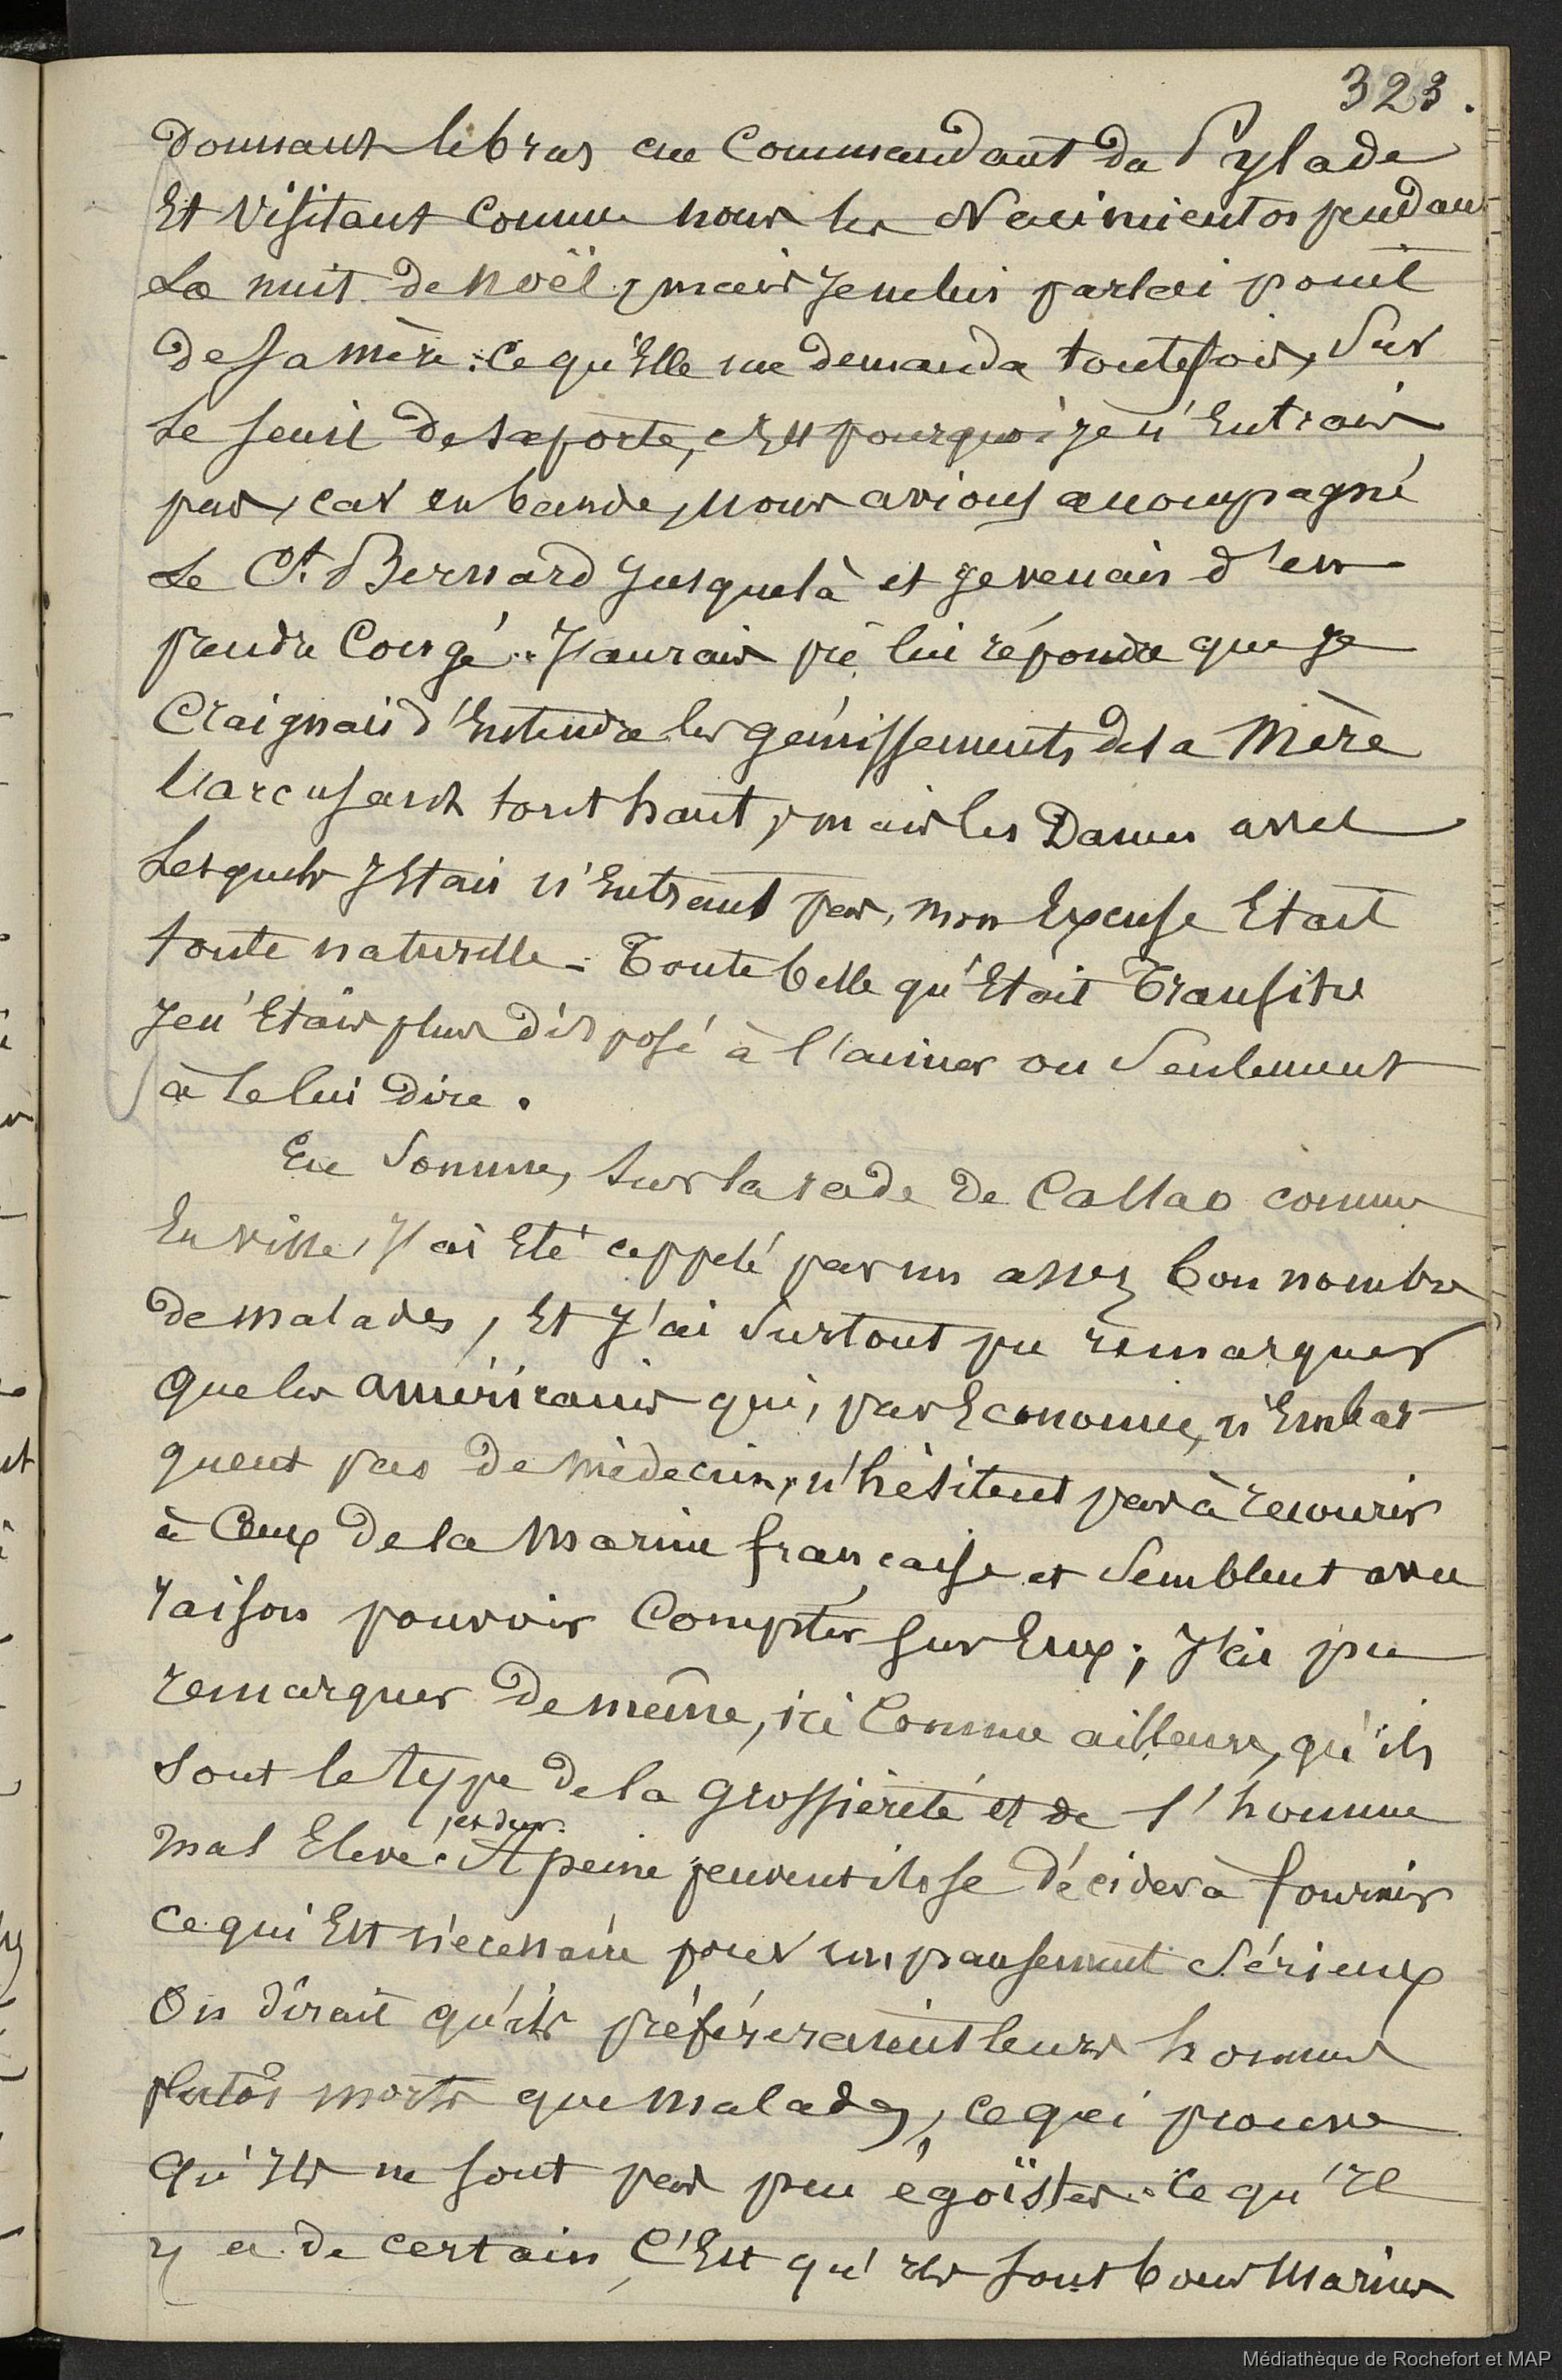 323.
donnant le bras au Commandant du Pylade
Et visitant comme nous les Nacimientos pendant
La nuit de noël, mais je ne lui parlai point
de sa mère. Ce qu'Elle me demanda toutefois, Sur
Le seuil de sa porte, c'Est pourquoi je n'Entrais
pas, car en bande, nous avions accompagné
Le Ct. Bernard jusque là et je venais d'en
prendre Congé. J'aurais pû lui répondre que je
Craignais d'Entendre les gémissements de sa Mère
L'accusant tout haut, mais les Dames avec
Lesquels j'Etais n'Entrant pas, mon Excuse Etait
toute naturelle. Toute belle qu'Etait Transita
Je n'Etais plus disposé à l'aimer ou Seulement
à le lui dire.
En Somme, Sur la rade de Callao comme
En ville, J'ai Eté appelé par un assez bon nombre
de malades, Et J'ai Surtout pu remarquer
que les américains qui, par Economie, n'Embar
quent pas de médecin, n'hésitent pas à recourir
à Ceux de la Marine française et Semblent avec
raison pouvoir Compter sur Eux; J'ai pu
remarquer de même, ici Comme ailleurs, qu'ils
sont le type de la grossièreté et de l'homme
mal Elevé, et dur. A peine peuvent ils se décider à fournir
ce qui Est nécessaire pour un pansement Sérieux
On dirait qu'ils préfèreraient leurs hommes
plutôt morts que malades, ce qui prouve
qu'Ils ne sont pas peu égoïstes. Ce qu'Il
y a de certain, C'Est qu'Ils sont bons Marins
Médiathèque de Rochefort et MAP